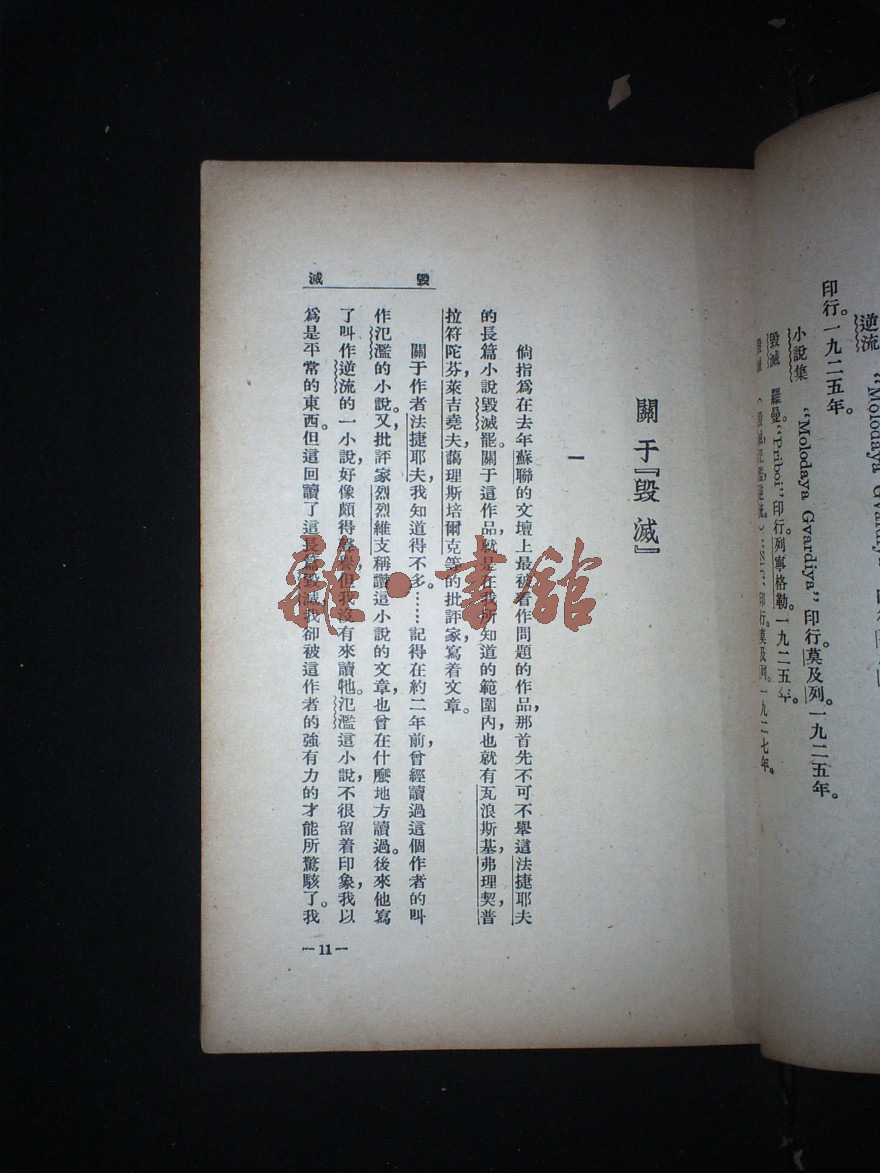 逆流 “Molodaya Gvardiya”
印行。一九二五年。
小說集 “Molodaya Gvardiya” 印行。莫及列。一九二五年。
毀滅 羅曼。“Priboi” 印行。列寧格勒。一九二五年。
印行。莫及列。一九二七年。
毀滅
關于『毀滅』
一
倘指爲在去年蘇聯的文壇上最被看作問題的作品，那首先不可不舉這法捷耶夫
的長篇小說毀滅罷。關于這作品，就是在我所知道的範圍內，也就有瓦浪斯基，弗理契，普
拉符陀芬，萊吉堯夫，藹理斯培爾克等的批評家寫着文章。
關于作者法捷耶夫，我知道得不多。……記得在約二年前，曾經讀過這個作者的叫
作氾濫的小說。又，批評家烈烈維支稱讚這小說的文章，也曾在什麼地方讀過。後來他寫
了叫作逆流的一小說，好像頗得聲譽，但我沒有來讀牠。氾濫這小說，不很留着印象，我以
爲是平常的東西。但這回讀了這長篇毀滅，我卻被這作者的強有力的才能所驚駭了。我
—11—
雜·書館